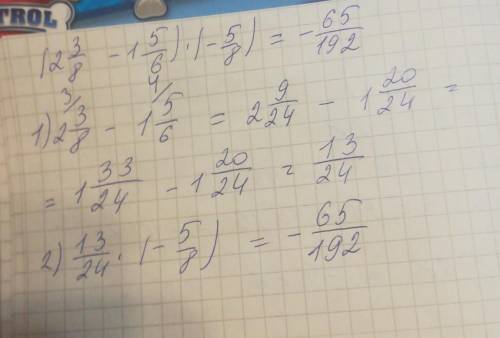 TROL
(2 3/8 - 1 5/6) · (- 5/8) = - 65/192
3/ 4/
1) 2 3/8 - 1 5/6 = 2 9/24 - 1 20/24 =
= 1 33/24 - 1 20/24 = 13/24
2) 13/24 · (- 5/8) = - 65/192